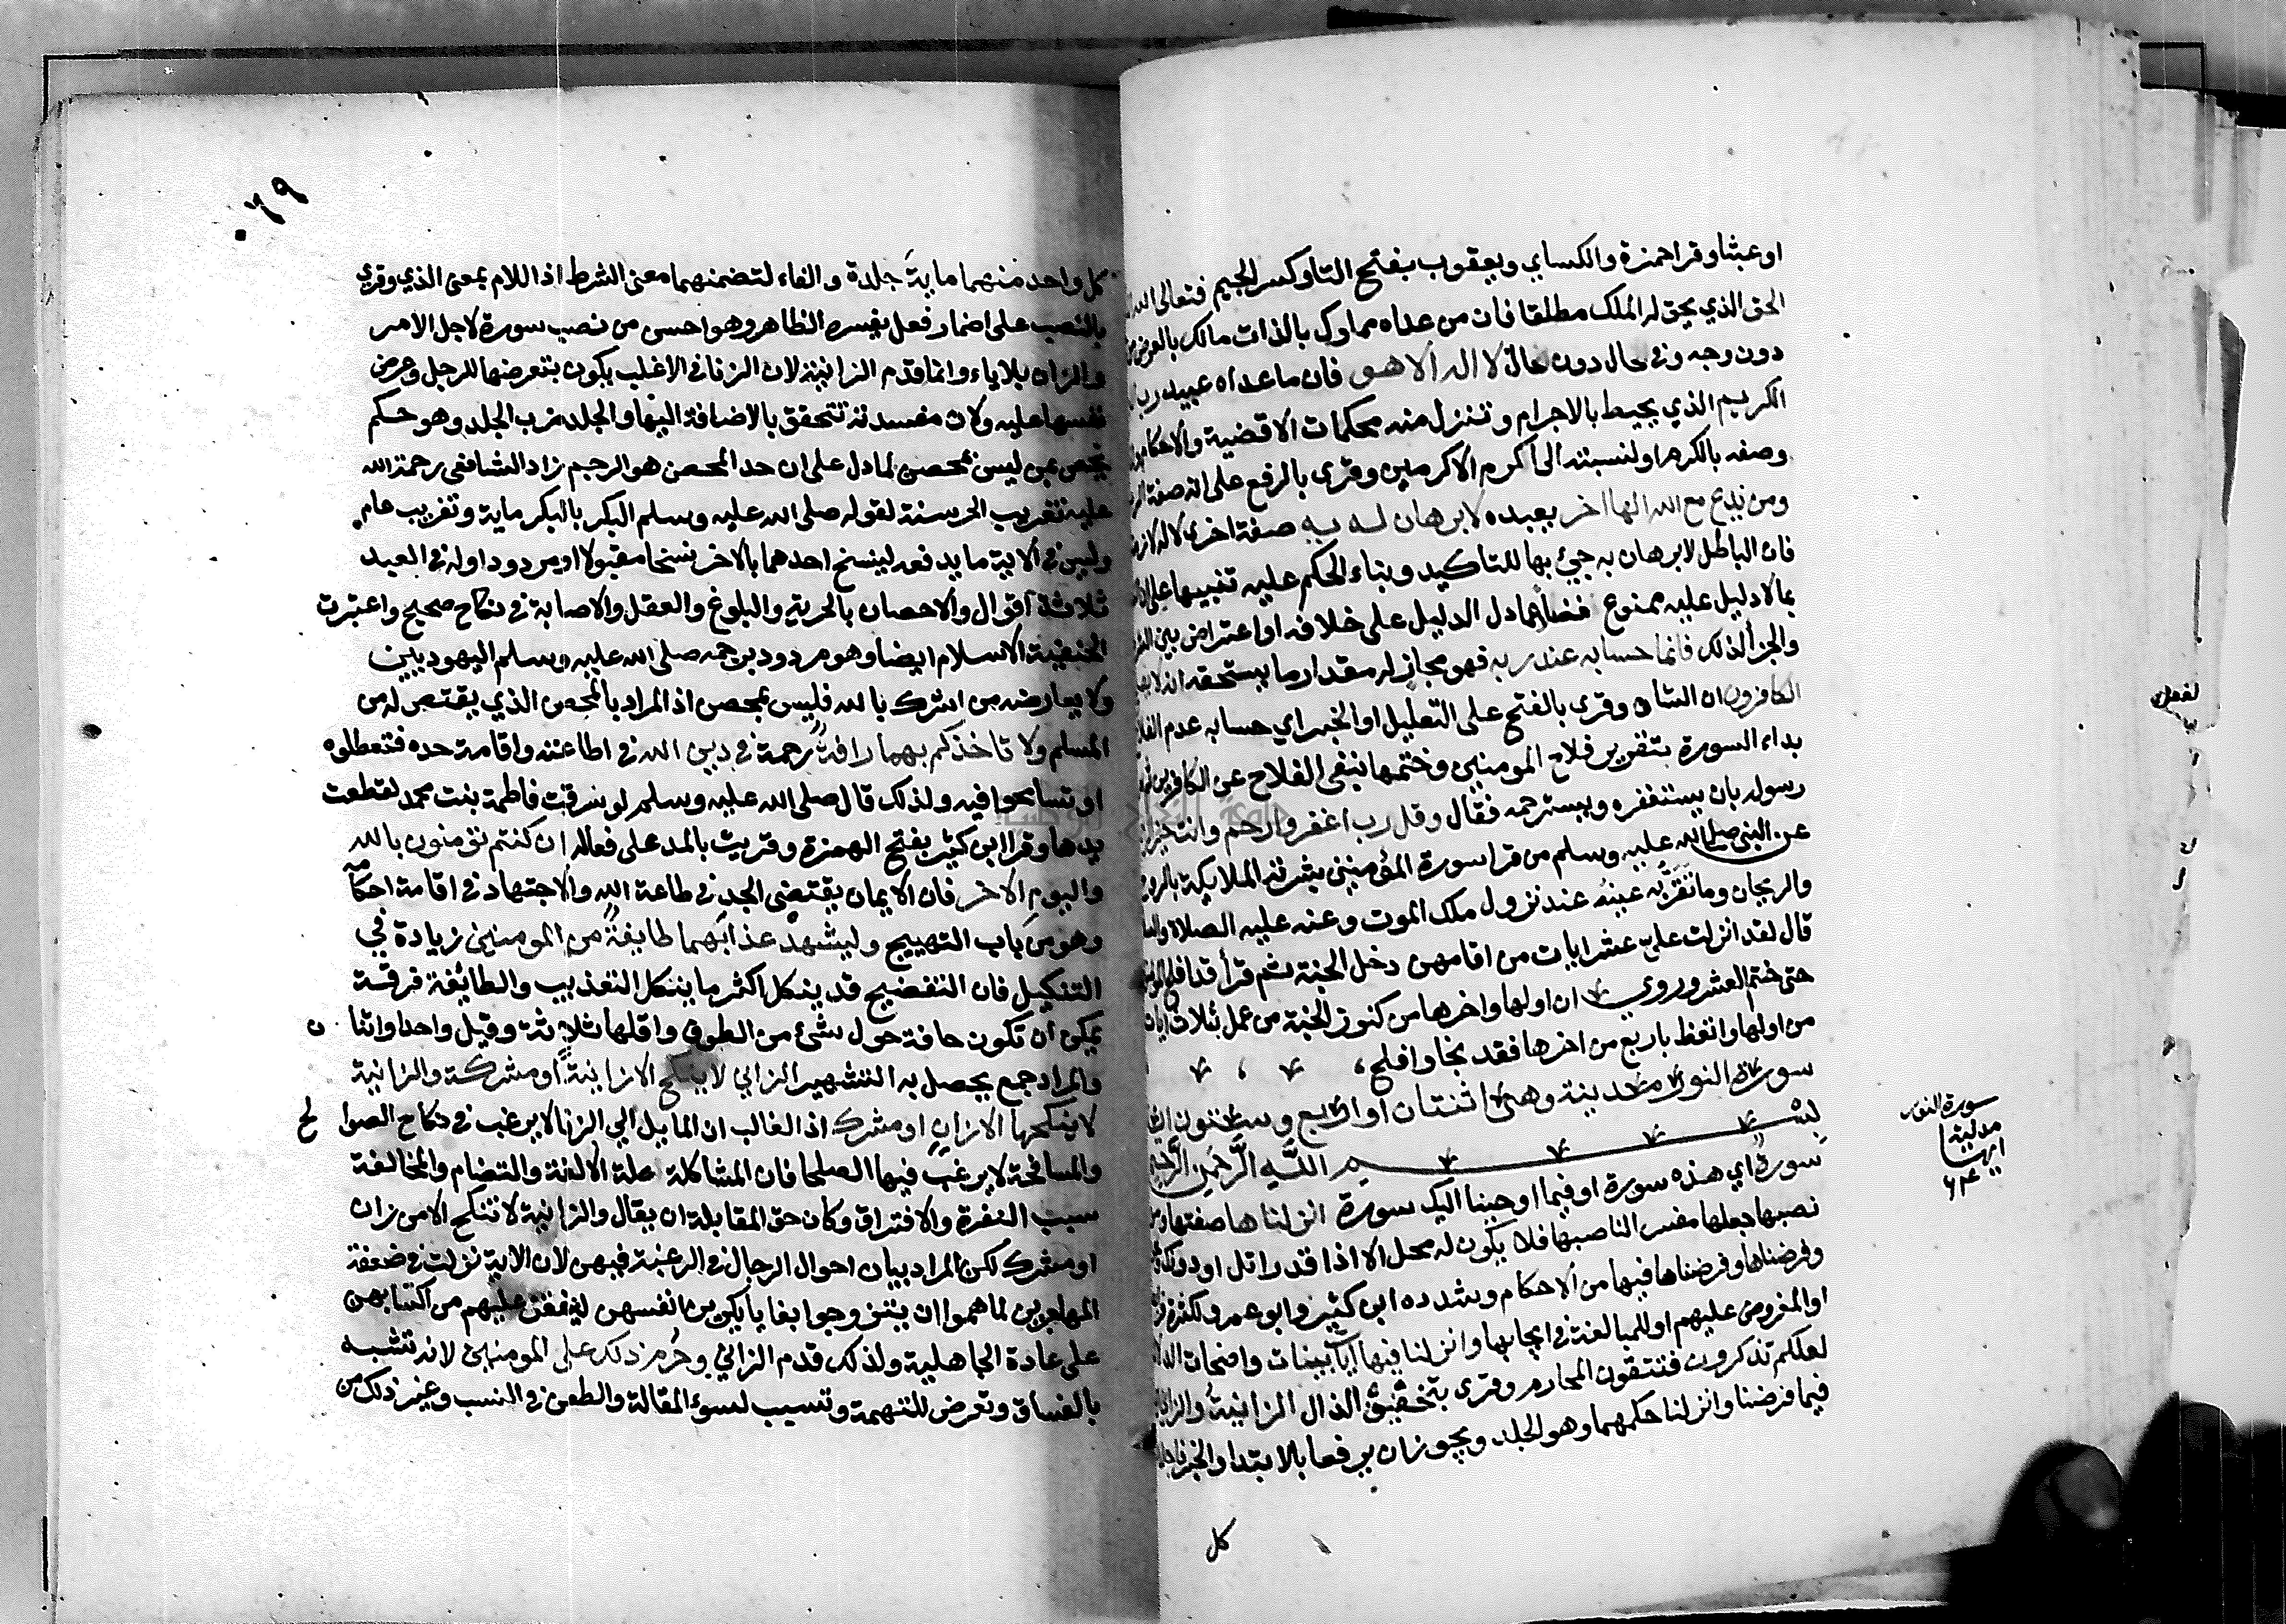 او عبثا وقرا حمزة والكساي ويعقوب بفتح التا وكسر الجيم فتعالى الله
الحق الذي يحق له الملك مطلقا فان من عداه مملوك بالذات مالك بالعرض من
دون وجه وفي حال دون حال لا اله الا هو فان ما عداه عبيد رب
الكريم الذي يحيط بالاجرام وتنزل منه محكمات الاقضية والاحكام
وصفه بالكرم او لنسبته الى اكرم الاكرمين وقرى بالرفع على انه صفة
ومن يدع مع الله الها اخر يعبده لا برهان له به صفة اخرى لاله لازمة
فان الباطل لا برهان به جيئ بها للتاكيد وبناء الحكم عليه تنبيها على ان
بما لا دليل عليه ممنوع فضلا عما دل الدليل على خلافه او اعتراض بين
والجزأ لذلك فانما حسابه عند ربه فهو مجاز له مقدار ما يستحقه انه لا يفلح
الكافرون ان الشان وقرى بالفتح على التعليل او الخبر اي حسابه عدم
بداء السورة بتقرير فلاح المومنين وختمها بنفى الفلاح عن الكافرين
رسوله بان يستغفره ويسترحمه فقال وقل رب اغفر وارحم وانت خير
عن النبي صلى الله عليه وسلم من قرا سورة المؤمنين بشرته الملايكة بالروح
والريحان وما تقر به عينه عند نزول ملك الموت وعنه عليه الصلاة
قال لقد انزلت علي عشر ايات من اقامهن دخل الجنة ثم قرأ قد افلح
حتى ختم العشر وروي ان اولها واخرها من كنوز الجنة من عمل بثلاث ايات
من اولها واتعظ باربع من اخرها فقد نجا وافلح
سورة النور مدينة وهي اثنتان او اربع وستون
بسم الله الرحمن الرحيم
سورة اي هذه سورة او فيما اوحينا اليك سورة انزلناها صفتها
نصبها جعلها مفسر الناصبها فلا يكون له محل الا اذا قدر اتل او دونك
وفرضناها وفرضنا ما فيها من الاحكام وشدده ابن كثير وابو عمرو لكثرة
او المفروض عليهم او للمبالغة في ايجابها وانزلنا فيها ايات بينات واضحات
لعلكم تذكرون فتتقون المحارم وقرى بتخفيف الذال الزانية والزاني
فيما فرضنا وانزلنا حكمهما وهو الجلد ويجوز ان يرفعا بالابتدا والخبر
كل
لفعل
سورة النور
مدنية
ايها
٦٤
٠٦٩
كل واحد منهما ماية جلدة والفاء لتضمنهما معنى الشرط اذ اللام بمعنى الذي وقرى
بالنصب على اضمار فعل يفسره الظاهر وهو احسن من نصب سورة لاجل الامر
والزان بلاياء وانما قدم الزانية لان الزنا في الاغلب يكون بتعرضها للرجل وعرض
نفسها عليه ولان مفسدته تتحقق بالاضافة اليها والجلد ضرب الجلد وهو حكم
يخص بمن ليس بمحصن لما دل على ان حد المحصن هو الرجم زاد الشافعى رحمة الله
عليه تغريب الحر سنة لقوله صلى الله عليه وسلم البكر بالبكر ماية وتغريب عام
وليس في الاية ما يدفعه لينسخ احدهما بالاخر نسخا مقبولا او مردودا وله في العبد
ثلاثة اقوال والاحصان بالحرية والبلوغ والعقل والاصابة في نكاح صحيح واعتبرت
الحنفية الاسلام ايضا وهو مردود برجمه صلى الله عليه وسلم اليهوديين
ولا يعارضه من اشرك بالله فليس بمحصن اذ المراد بالمحصن الذي يقتص له من
المسلم ولا تاخذكم بهما رافة رحمة في دين الله في اطاعته واقامة حده فتعطلوه
او تسامحوا فيه ولذلك قال صلى الله عليه وسلم لو سرقت فاطمة بنت محمد لقطعت
يدها وقرا ابن كثير بفتح الهمزة وقريت بالمد على فعالة ان كنتم تؤمنون بالله
واليوم الاخر فان الايمان يقتضى الجد في طاعة الله والاجتهاد في اقامة احكامه
وهو من باب التهييج وليشهد عذابهما طايفة من المومنين زيادة في
التنكيل فان التفضيح قد ينكل اكثر ما ينكل التعذيب والطائفة فرقة
يمكن ان تكون حافة حول شئ من الطوف واقلها ثلاثة وقيل واحد واثنا ن
والمراد جمع يحصل به التشهير الزاني لا ينكح الا زانية او مشركة والزانية
لا ينكحها الا زان او مشرك اذ الغالب ان المايل الي الزنا لا يرغب في نكاح الصوا لح
والمسافحة لا يرغب فيها الصلحا فان المشاكلة علة الالفة والتضام والمخالفة
سبب النفرة والافتراق وكان حق المقابلة ان يقال والزانية لا تنكح الا من زان
او مشرك لكن المراد بيان احوال الرجال في الرغبة فيهن لان الاية نزلت في ضعفة
المهاجرين لما هموا ان يتزوجوا بغايا يكرين انفسهن لينفقن عليهم من اكسابهن
على عادة الجاهلية ولذلك قدم الزاني وحرم ذلك على المومنين لانه تشبه
بالفساق وتعرض للتهمة وتسبب لسوء المقالة والطعن في النسب وغير ذلك من